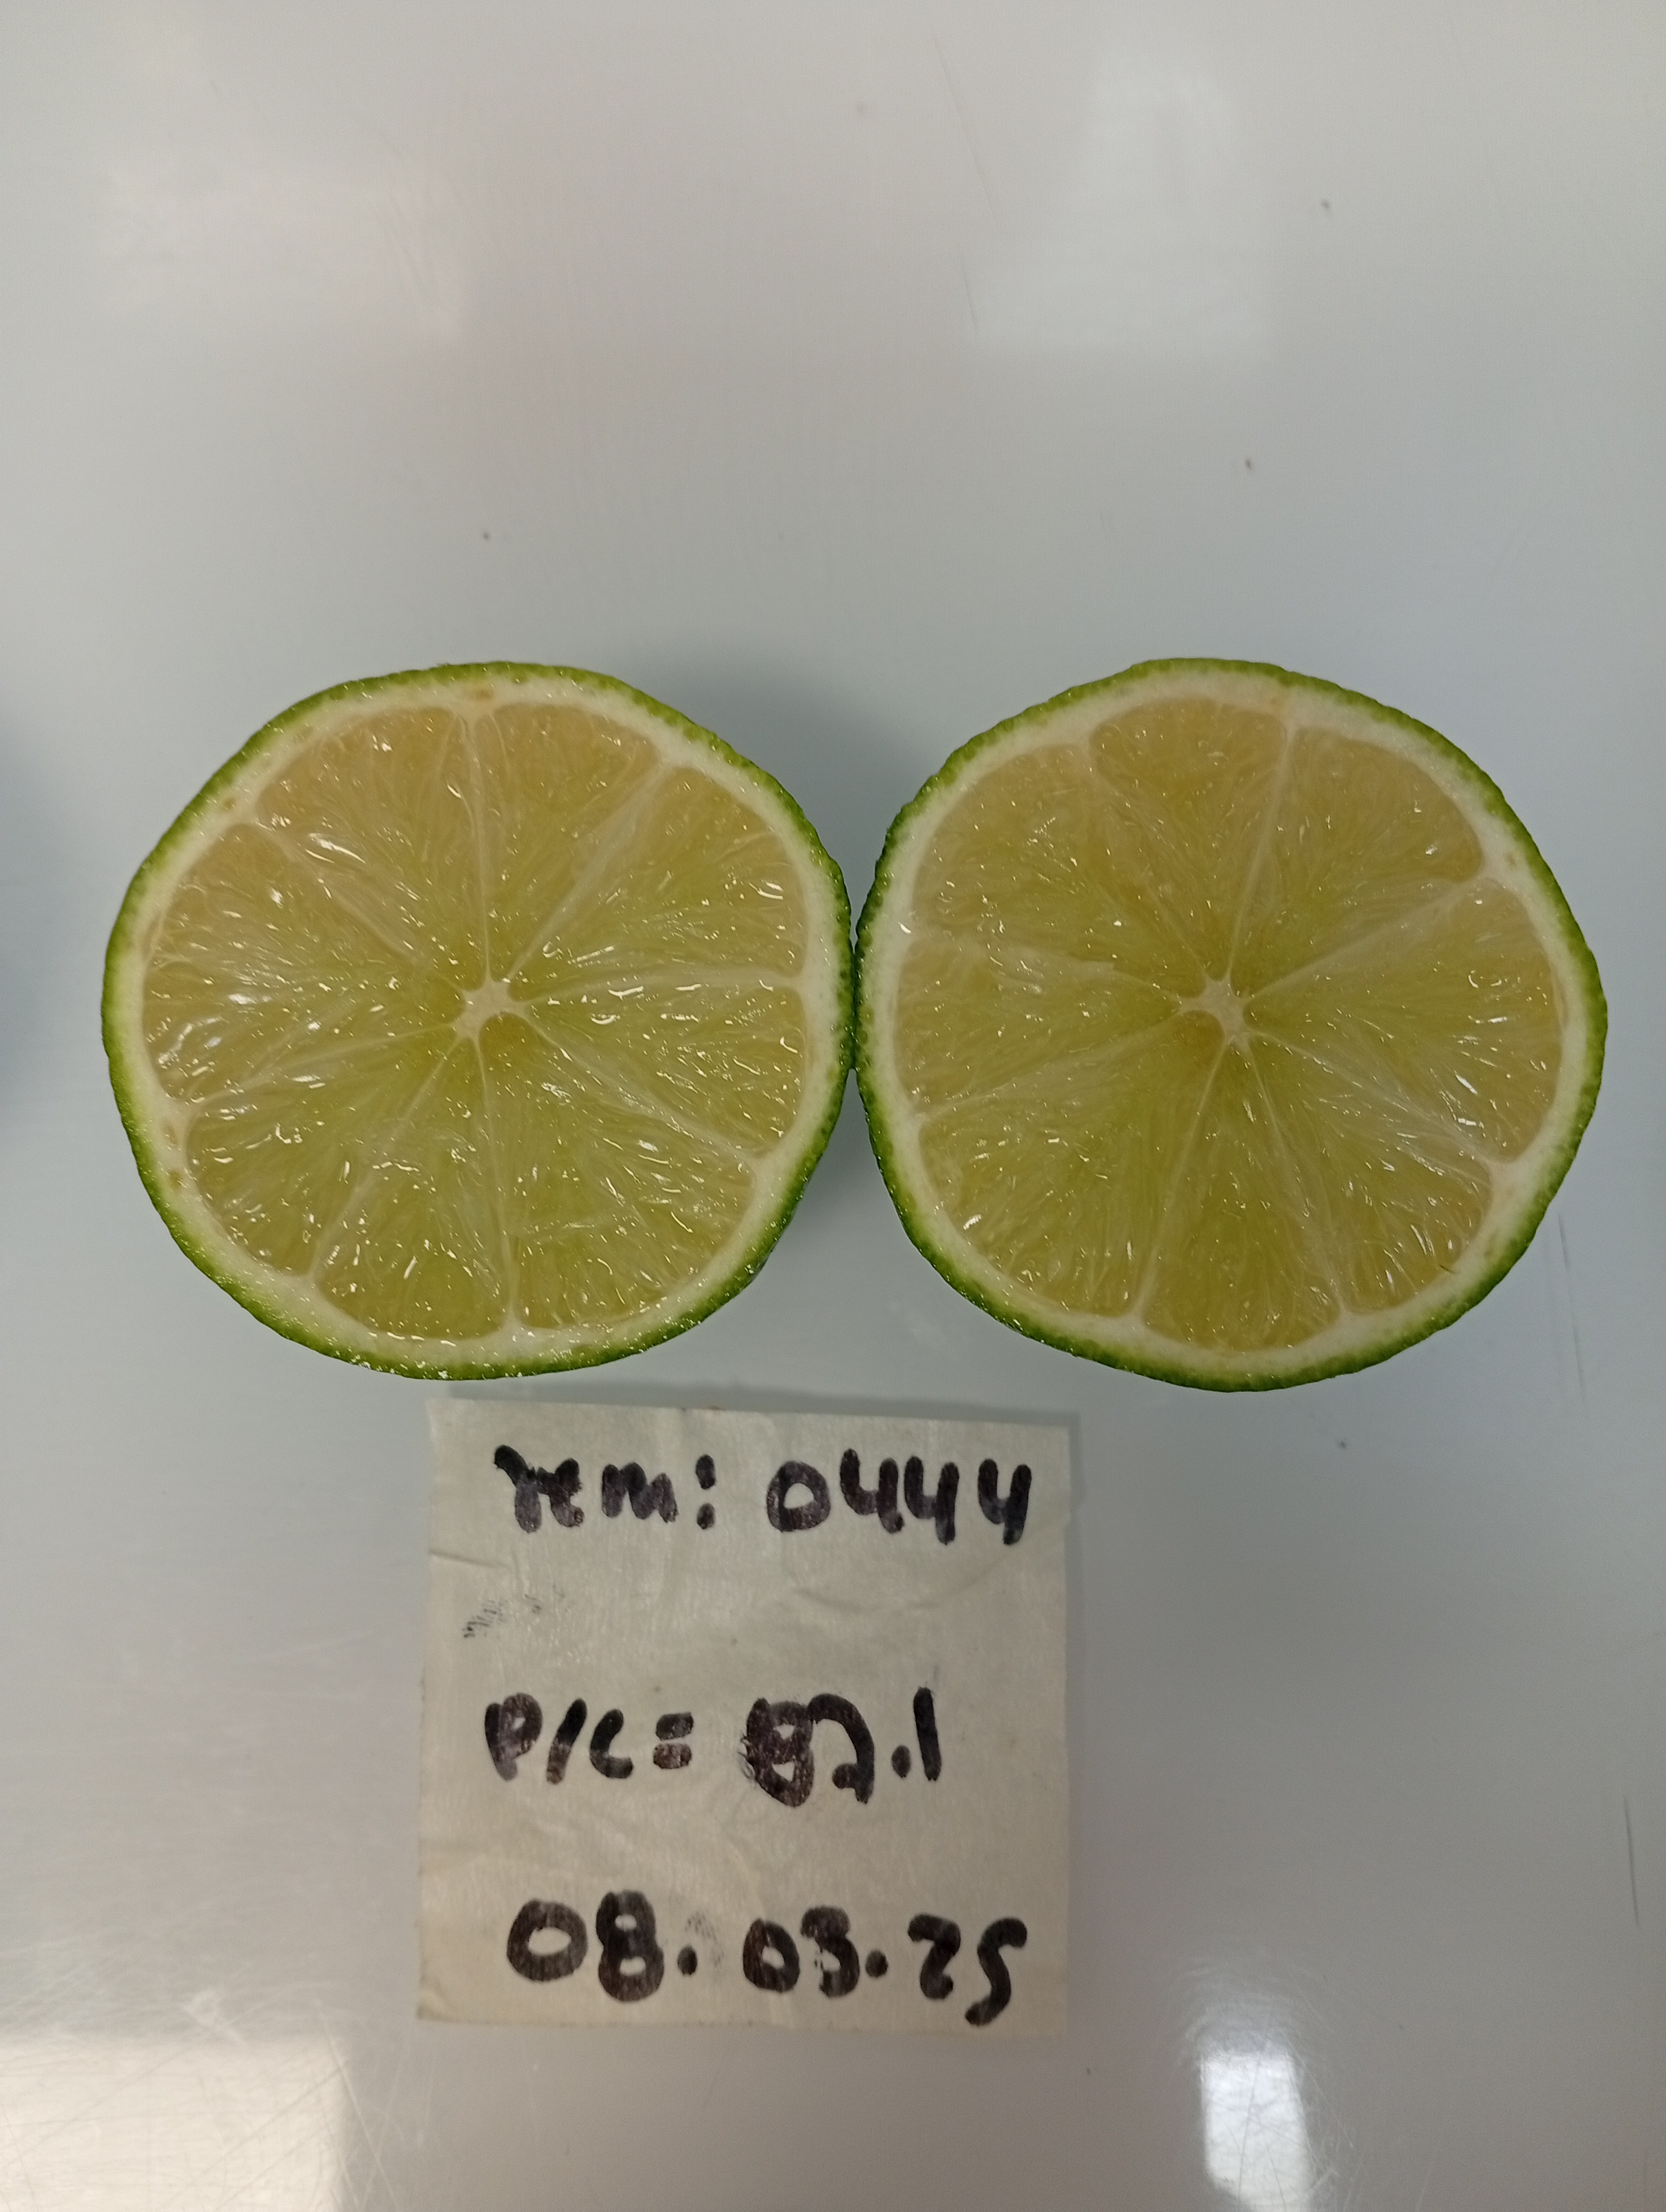 rem: 0444
P/C= 82.1
08.03.25